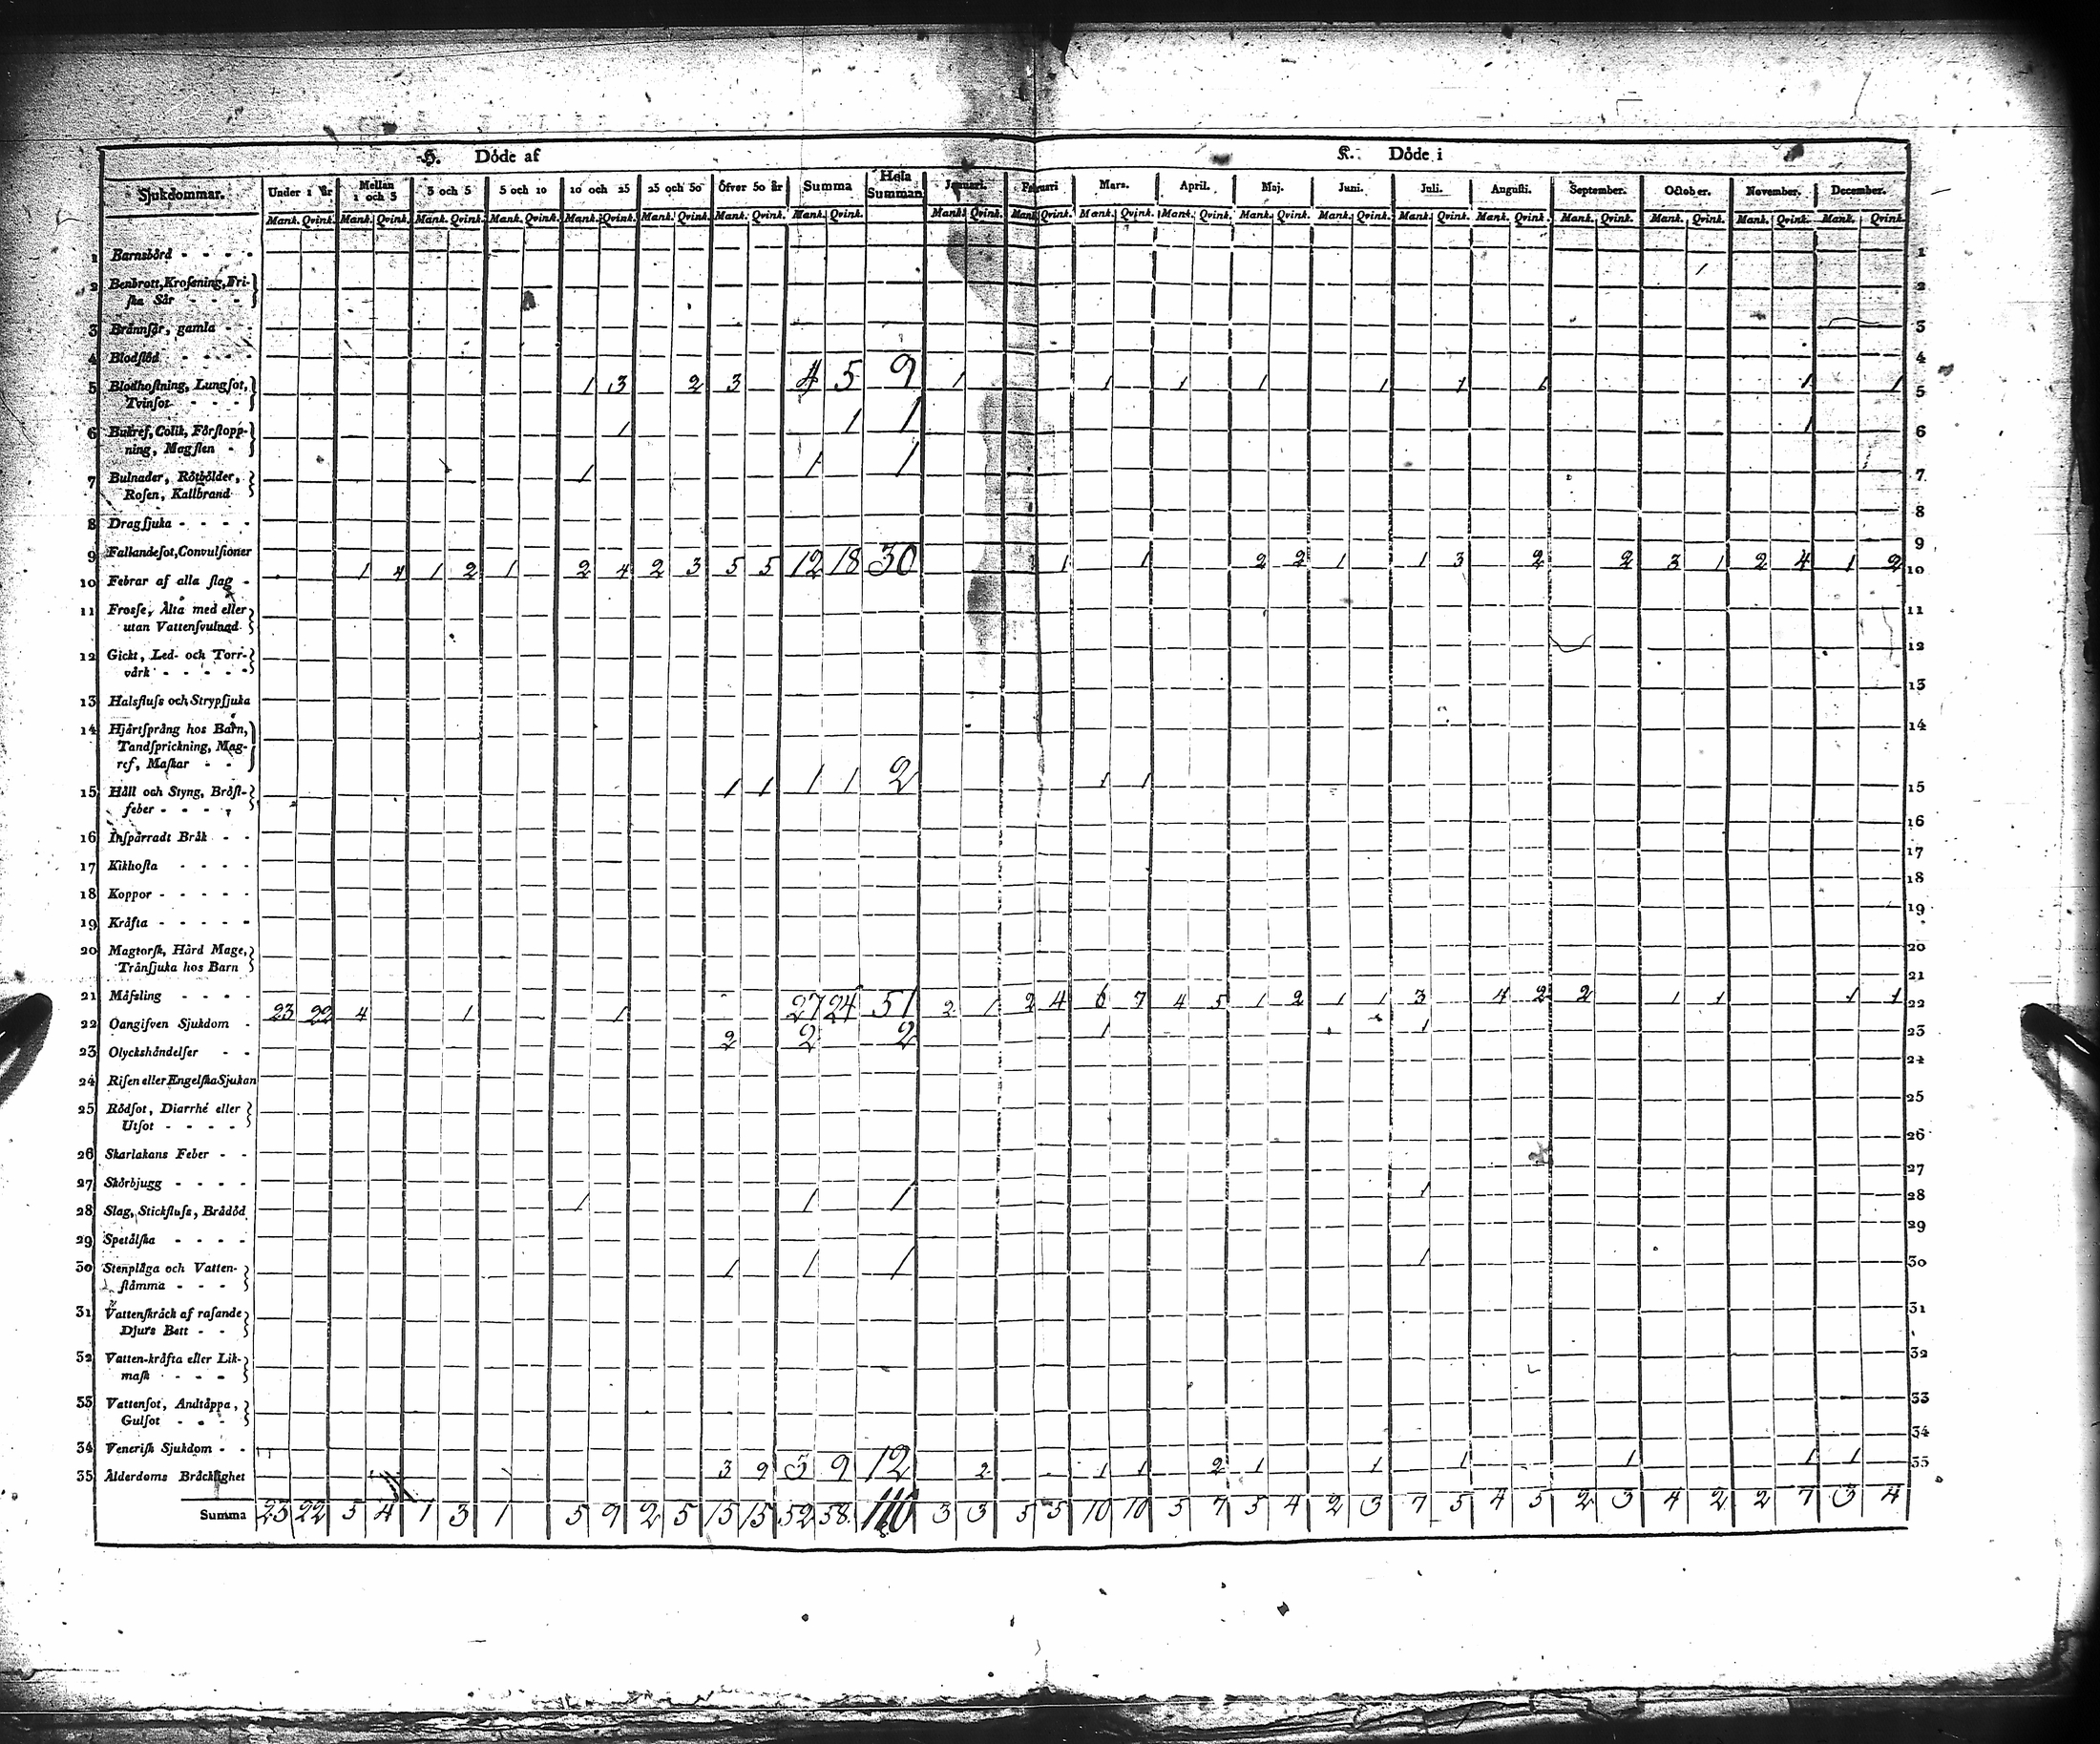 H. Döde af K. Döde i
Sjukdommar. Under 1 år Mellan 1 och 3 3 och 5 5 och 10 10 och 25 25 och 50 Öfver 50 år Summa Hela Summan Januari. Februari Mars. April. Maj. Juni. Juli. Augusti. September. October. November. December.
Mank. Qvink. Mank. Qvink. Mank. Qvink. Mank. Qvink. Mank. Qvink. Mank. Qvink. Mank. Qvink. Mank. Qvink. Mank. Qvink. Mank. Qvink. Mank. Qvink. Mank. Qvink. Mank. Qvink. Mank. Qvink. Mank. Qvink. Mank. Qvink. Mank. Qvink. Mank. Qvink. Mank. Qvink. Mank. Qvink.
1 Barnsbörd - - - - 1
2 Benbrott, Krosſning, Fri- 2
ſka Sår - - - -
3 Brännſår, gamla - - 3
4 Blodſlöd - - - - 4
5 Blodhoſtning, Lungſot, 1 3 2 3 4 5 9 1 1 1 1 1 1 1 1 1 5
Tvinſot - - - -
6 Bukref, Colik, Förſtopp- 1 1 1 1 6
ning, Magſten -
7 Bulnader, Rötbölder, 1 1 1 7
Roſen, Kallbrand
8 Dragſjuka - - - - 8
9 Fallandeſot, Convulſioner 9
10 Febrar af alla ſlag - 1 4 1 2 1 2 4 2 3 5 5 12 18 30 1 1 2 2 1 1 3 2 2 3 1 2 4 1 2 10
11 Frosſe, Älta med eller 11
utan Vattenſvulnad
12 Gickt, Led- och Torr- 12
värk - - - - -
13 Halsfluſs och Strypſjuka 13
14 Hjärtſprång hos Barn, 14
Tandſprickning, Mag-
ref, Maſkar - -
15 Håll och Styng, Bröſt- 1 1 1 1 2 1 1 15
feber - - - -
16 Inſpärradt Bråk - - 16
17 Kikhoſta - - - - 17
18 Koppor - - - - - 18
19 Kräfta - - - - - 19
20 Magtorſk, Hård Mage, 20
Trånſjuka hos Barn
21 Måſsling - - - - 21
22 Oangifven Sjukdom - 23 22 4 1 1 27 24 51 2 1 2 4 6 7 4 5 1 2 1 1 3 4 2 2 1 1 1 1 22
23 Olyckshändelſer - - 2 2 2 1 1 23
24 Riſen eller Engelſka Sjukan 24
25 Rödſot, Diarrhé eller 25
Utſot - - - -
26 Skarlakans Feber - - 26
27 Skörbjugg - - - - 27
28 Slag, Stickfluſs, Brådöd 1 1 1 1 28
29 Spetälſka - - - - 29
30 Stenplåga och Vatten- 1 1 1 1 30
ſtämma - - - -
31 Vattenſkräck af raſande 31
Djurs Bett - -
32 Vatten-kräfta eller Lik- 32
maſk - - - -
33 Vattenſot, Andtäppa, 33
Gulſot - - -
34 Veneriſk Sjukdom - - 34
35 Ålderdoms Bräcklighet 3 9 3 9 12 2 1 1 2 1 1 1 1 1 1 35
Summa 23 22 5 4 1 3 1 5 9 2 5 15 15 52 58 110 3 3 5 5 10 10 5 7 5 4 2 3 7 5 4 5 2 3 4 2 2 7 3 4